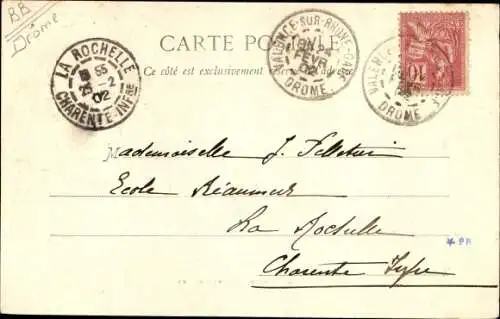 BB
Drome
CARTE POSTALE
Ce côté est exclusivement réservé à l'adresse
LA ROCHELLE
25 -2
02
CHARENTE-INFRE
VALENCE-SUR-RHONE-GARE
FEVR
02
DROME
VALENCE
10
DROME
M
Mademoiselle J. Pelletier
Ecole Réaumur
La Rochelle
Charente Infre
* PA